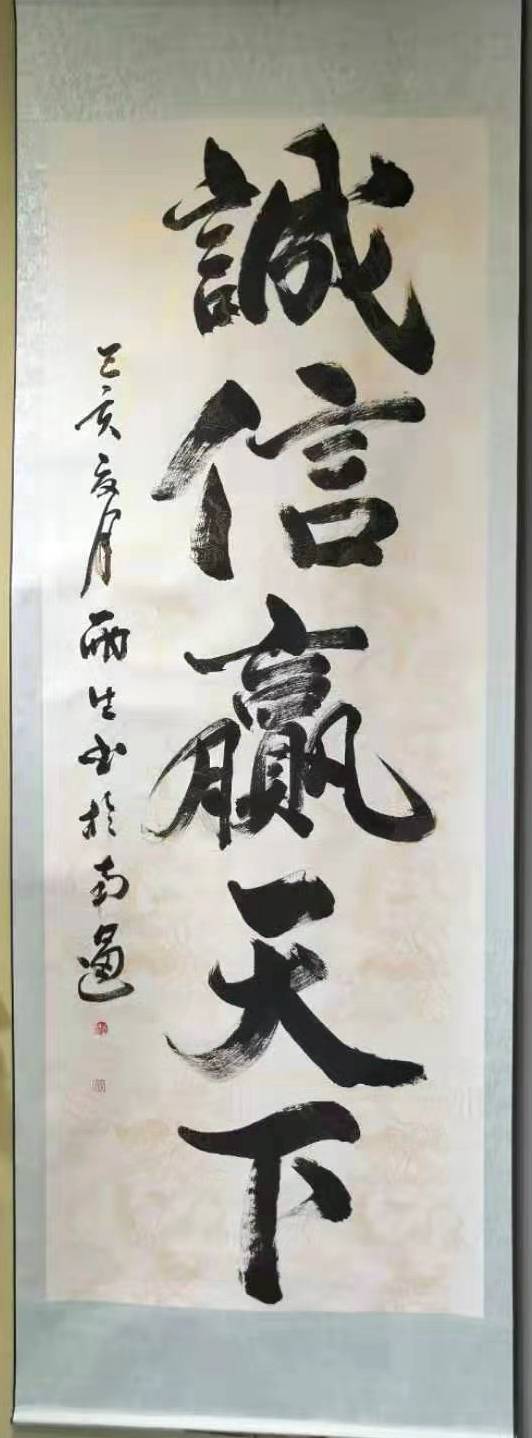 誠信贏天下
己亥夏月雨生书於南通